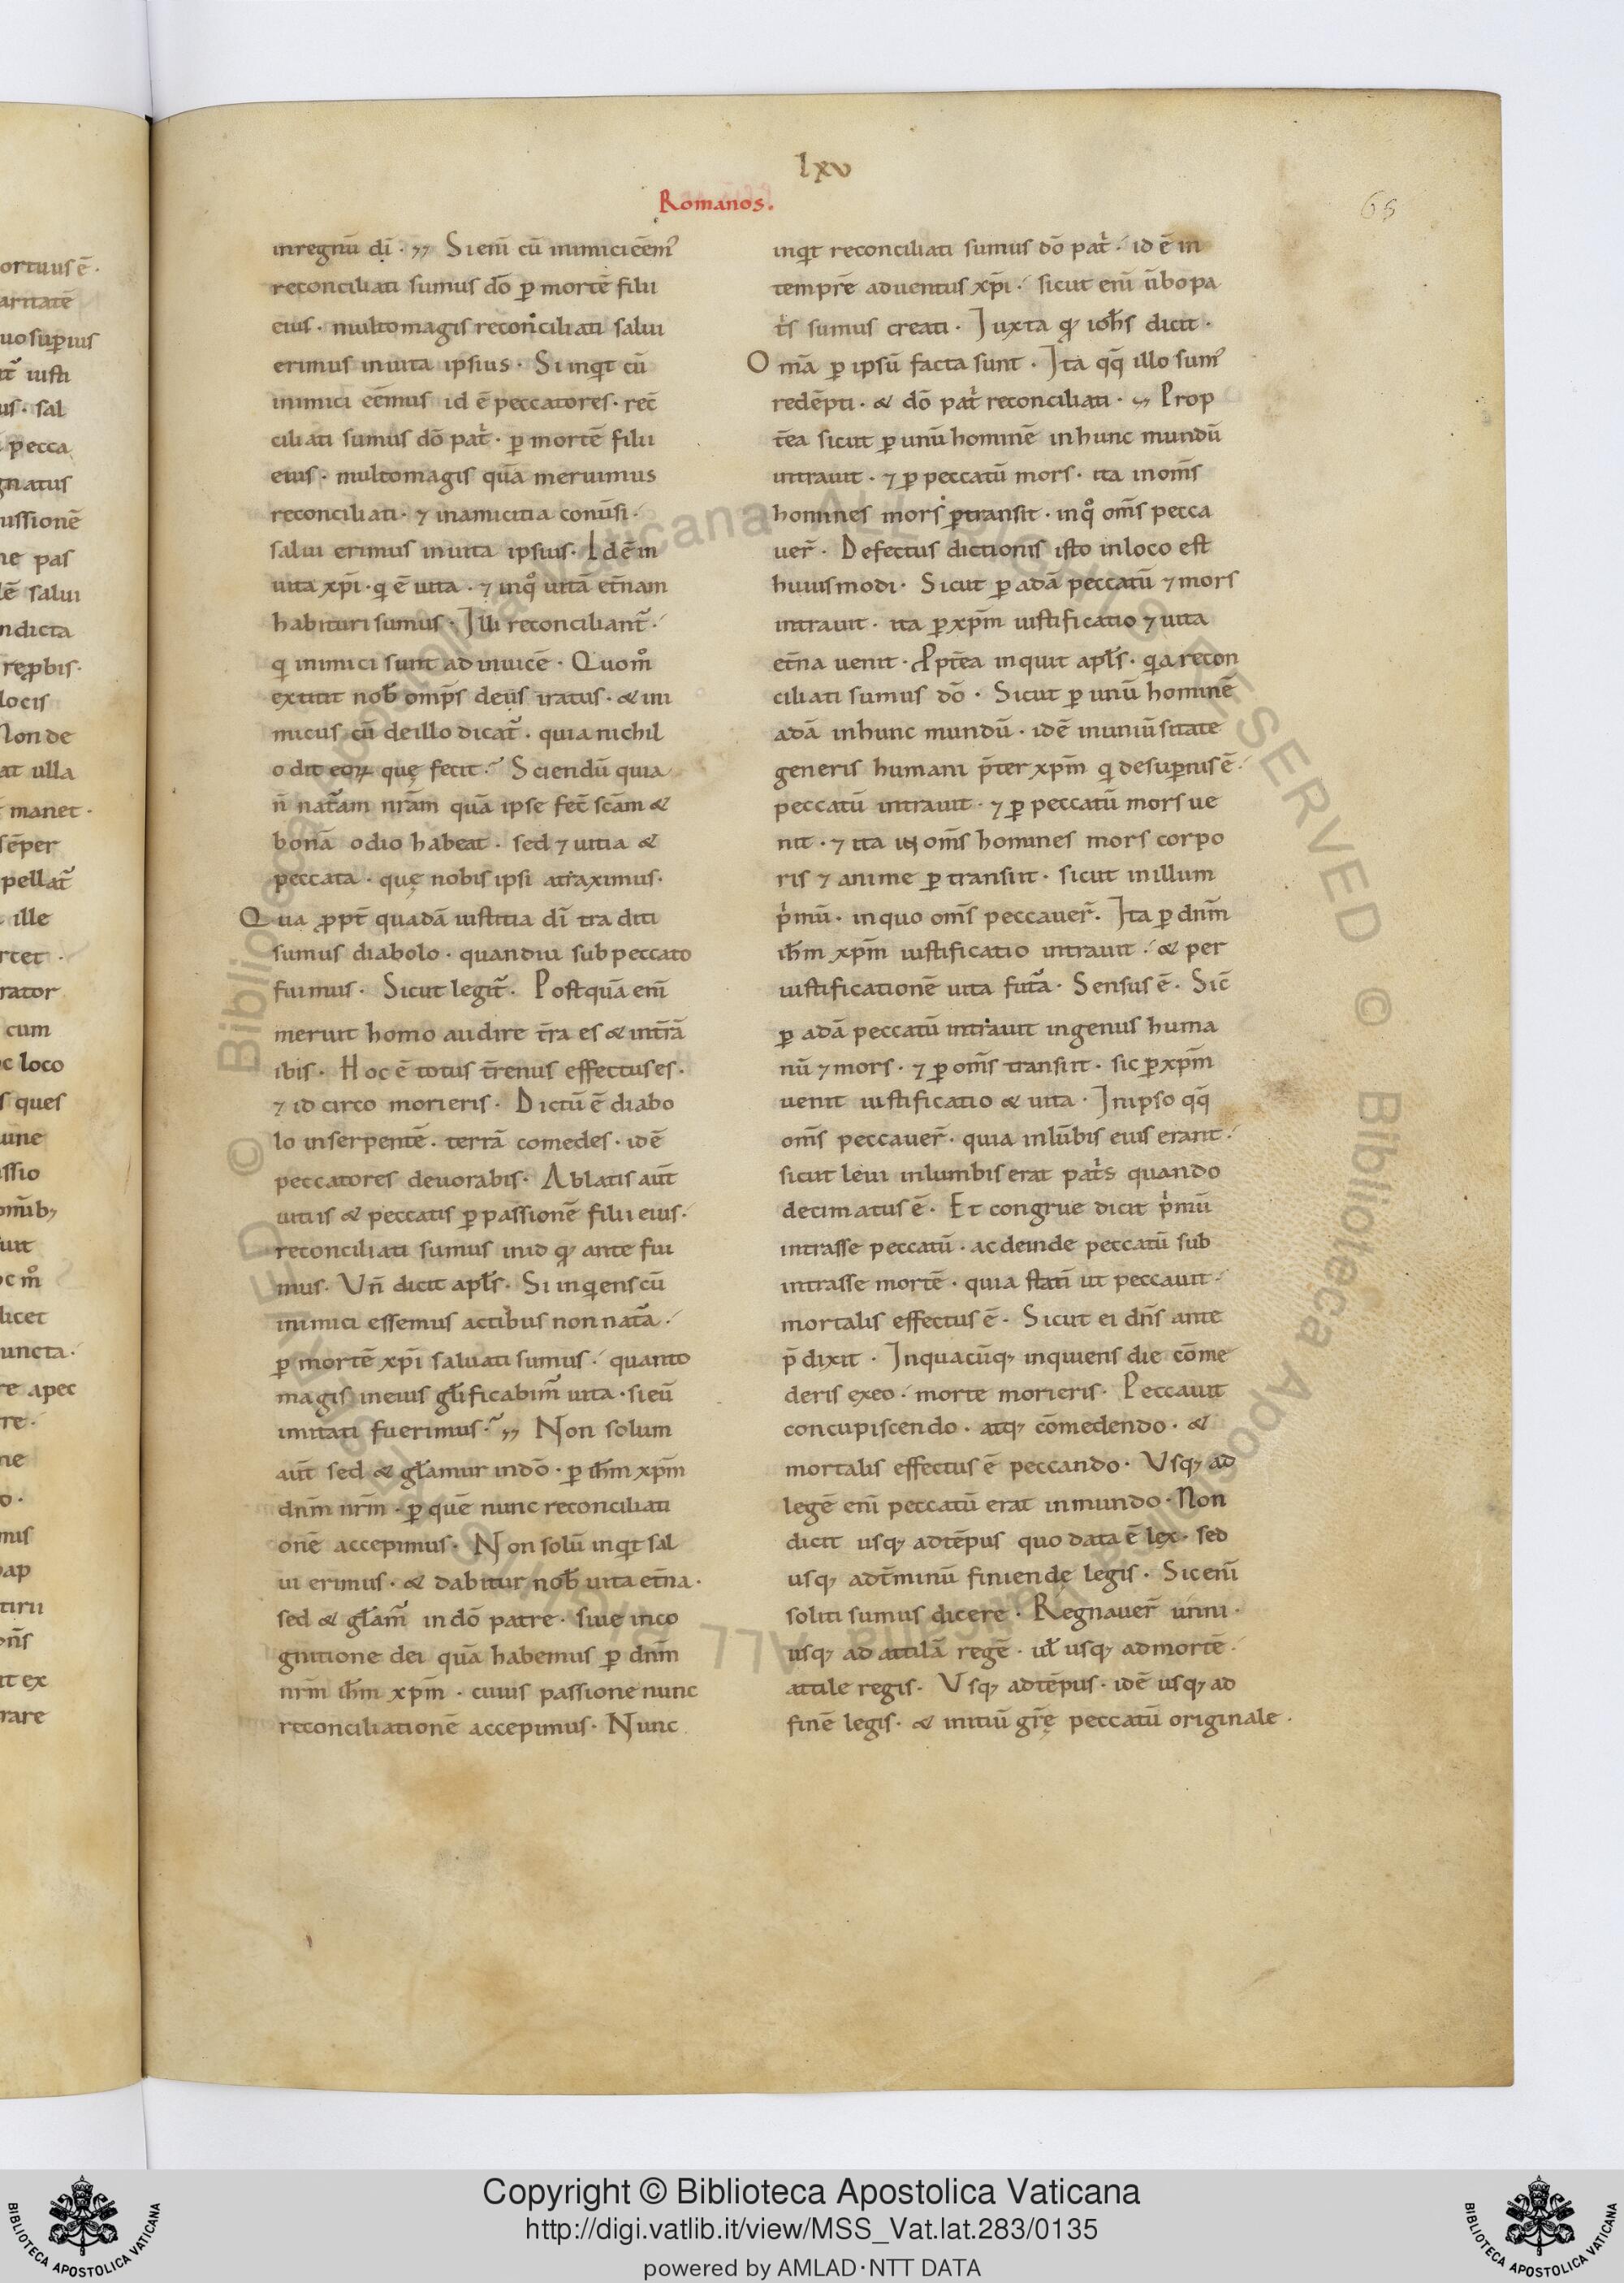 lxv
Romanos.
65
inregnū dī · Si enī cū inimici eēm᷒
reconciliati sumus dō ꝑ mortē filii
eius · multomagis reconciliati salui
erimus inuita ipsius · Si inqͥt cū
inimici eēmus id ē peccatores · rec̄
ciliati sumus dō pat̓ · ꝑ mortē filii
eius · multomagis quā meruimus
reconciliati · ⁊ inamicitia conūsi ·
salui erimus inuita ipsius · Id ē in
uita xp̄i · q̇ ē uita · ⁊ inqͦ uitā et̄nam
habituri sumus · Illi reconciliant᷑ ·
q̇ inimici sunt ad inuicē · Quomͦ
extitit nob̄ omp̄s deus iratus · & ini
micus cū deillo dicat᷑ · quia nichil
odit eoꝝ quę fecit · Sciendū quia
n̄ nat᷑am nr̄am quā ipse fec̄ sc̄am &
bonā odio habeat · sed ⁊ uitia &
peccata · quę nobis ipsi atraximus ·
Qua ꝓpt̄ quadā iustitia dī tra diti
sumus diabolo · quandiu sub peccato
fuimus · Sicut legit᷑ · Postquā enī
meruit homo audire t̄ra es & int̄rā
ibis · Hoc ē totus t̄renus effectus es ·
⁊ id circo morieris · Dictū ē diabo
lo inserpentē · terrā comedes · idē
peccatores deuorabis · Ablatis aūt
uitiis & peccatis ꝑ passionē filii eius ·
reconciliati sumus inid qđ ante fui
mus · Vn̄ dicit apl̄s · Si inq̇ens cū
inimici essemus actibus non nat᷑a ·
ꝑ mortē xp̄i saluati sumus · quanto
magis ineius gl̄ificabim᷑ uita · si eū
imitati fuerimus · Non solum
aūt sed & gl̄amur indō · ꝑ ih̄m xp̄m
dn̄m nr̄m · ꝑ quē nunc reconciliati
onē accepimus · Non solū inqͥt sal
ui erimus · & dabitur nob̄ uita et̄na ·
sed & gl̄am᷑ in dō patre · siue inco
gnitione dei quā habemus ꝑ dn̄m
nr̄m ih̄m xp̄m · cuius passione nunc
reconciliationē accepimus · Nunc
inqͥt reconciliati sumus dō pat̓ · id ē in
tempr̄e aduentus xp̄i · sicut enī ūbo pa
t̓s sumus creati · Iuxta qđ ioh̄s dicit ·
Om̄a ꝑ ipsū facta sunt · Ita qq̄ illo sum᷒
redēpti · & dō pat̓ reconciliati · Prop
t̄ea sicut ꝑ unū hominē inhunc mundū
intrauit · ⁊ ꝑ peccatū mors · ita inom̄s
homines mors ꝑtransit · inqͦ om̄s pecca
uer̄ · Defectus dictionis isto inloco est
huiusmodi · Sicut ꝑ adā peccatū ⁊ mors
intrauit · ita ꝑ xp̄m iustificatio ⁊ uita
et̄na uenit · Ꝓpt̄ea inquit apl̄s · q̇a recon
ciliati sumus dō · Sicut ꝑ unū hominē
adā inhunc mundū · idē inuniūsitate
generis humani p̄ter xp̄m q̇ desuꝑnis ē ·
peccatū intrauit · ⁊ ꝑ peccatū mors ue
nit · ⁊ ita in om̄s homines mors corpo
ris ⁊ anime ꝑ transiit · sicut inillum
p̓mū · inquo om̄s peccauer̄ · Ita ꝑ dn̄m
ih̄m xp̄m iustificatio intrauit · & per
iustificationē uita fut᷑a · Sensus ē · Sic̄
ꝑ adā peccatū intrauit ingenus huma
nū ⁊ mors · ⁊ ꝑ om̄s transiit · sic ꝑ xp̄m
uenit iustificatio & uita · Inipso qq̄
om̄s peccauer̄ · quia inlūbis eius erant ·
sicut leui inlumbis erat pat̓s quando
decimatus ē · Et congrue dicit p̓mū
intrasse peccatū · ac deinde peccatū sub
intrasse mortē · quia statī ut peccauit ·
mortalis effectus ē · Sicut ei dn̄s ante
p̄dixit · Inquacūqꝫ inquiens die cōme
deris exeo · morte morieris · Peccauit
concupiscendo · atqꝫ cōmedendo · &
mortalis effectus ē peccando · Vsqꝫ ad
legē enī peccatū erat inmundo · Non
dicit usqꝫ adtēpus quo data ē lex · sed
usqꝫ adt̄minū finiende legis · Sic enī
soliti sumus dicere · Regnauer̄ unni ·
usqꝫ ad attilā regē · ul̄ usqꝫ admortē ·
attile regis · Vsqꝫ adtēpus · idē usqꝫ ad
finē legis · & initiū gr̄ę peccatū originale ·
Copyright © Biblioteca Apostolica Vaticana
http://digi.vatlib.it/view/MSS_Vat.lat.283/0135
powered by AMLAD·NTT DATA